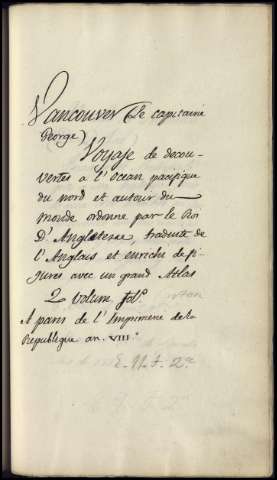 Vancouver (Le capitaine
George)
Voyage de decou-
vertes a l'ocean pacifique
du nord et autour du
monde ordonne par le Roi
D'Angleterre, traduite de
l'Anglais et enriche de fi-
gures avec un grand Atlas
2 volum. fol.º
A paris de l'Imprimerie de la
Republique an. VIII.º
E. II. t. 2.ª